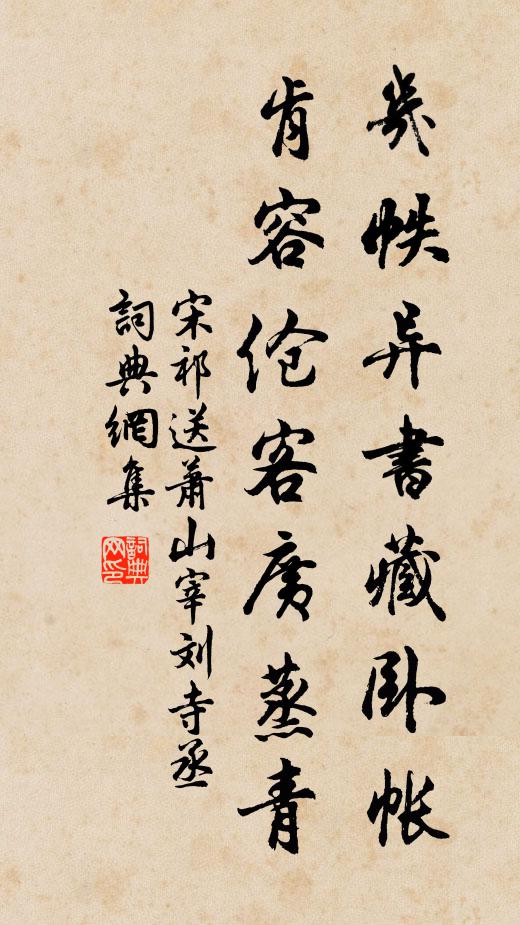 幾帙异書藏卧帐
肯容伧客廣蒸青
宋祁送萧山宰刘寺丞
詞典網集
詞典网印